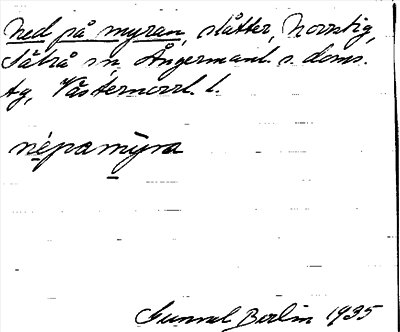 Ned på myran, slåtter, Norrstig,
Säbrå sn, Ångermanl. s. doms.
tg, Västernorrl. l.
nepamyra
Gunnel Berlin 1935